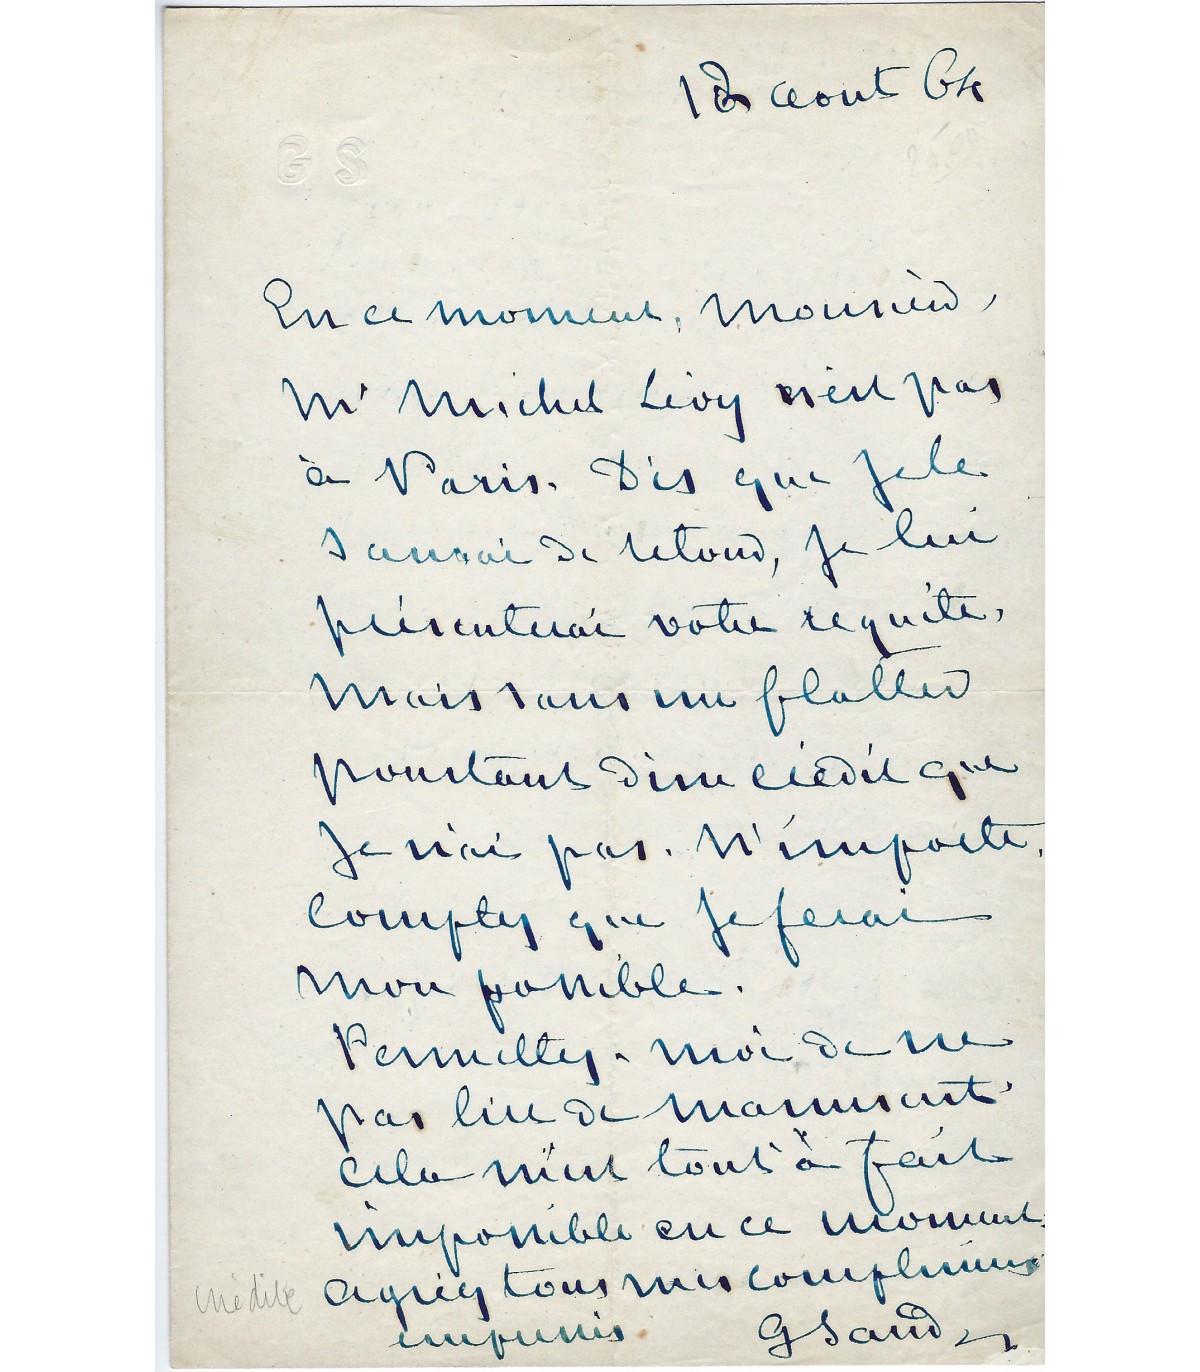 18 aout 64
G S
En ce moment, monsieur,
Mr Michel Lévy n'est pas
à Paris. Dès que je le
saurai de retour, je lui
présenterai votre requête,
mais sans me flatter
pourtant d'un crédit que
je n'ai pas. N'importe,
comptez que je ferai
mon possible.
Permettez-moi de ne
pas lire de manuscrit
cela m'est tout à fait
impossible en ce moment.
agréez tous mes complimens
empressés G Sand
inédite